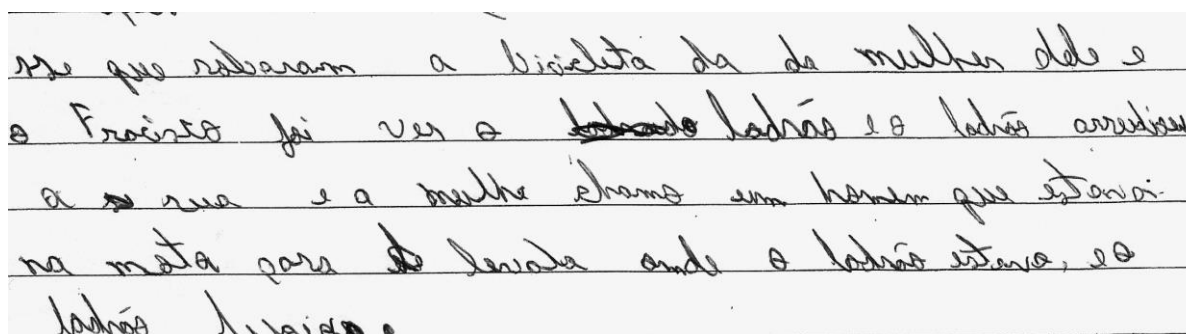 se que robaram a bicicleta da da mulher dele e
o Fracisto foi ver o ladrão e o ladrão
a rua e a mulhe chamo um homem que estava
na mota para levala onde o ladrão estava, e o
ladrão